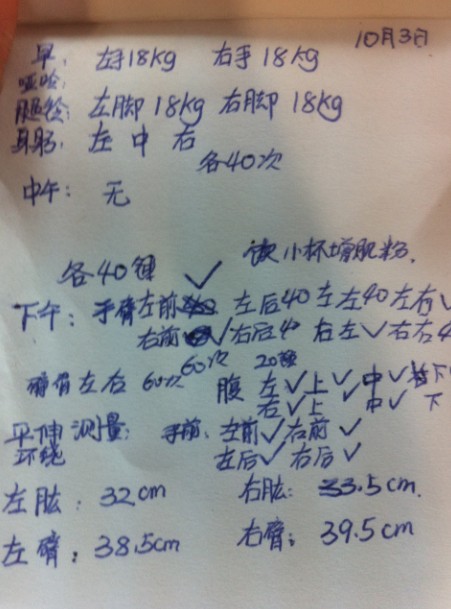 10月3日
早: 左手18kg 右手18kg
哑铃:
腿: 左脚18kg 右脚18kg
左 中 右
各40次
中午: 无
小杯增肌粉.
各40锺 ✓
下午: 手臂左前 左后40 左左40 左右✓
右前 ✓右后40 右左✓右右4
60次 20
左右 60次 腹 左✓上✓中✓下
右✓上✓中✓下
平伸测量: 手前: 左前✓右前✓
环绕 左后✓右后✓
左肱: 32cm 右肱: 33.5cm.
左臂: 38.5cm 右臂: 39.5cm